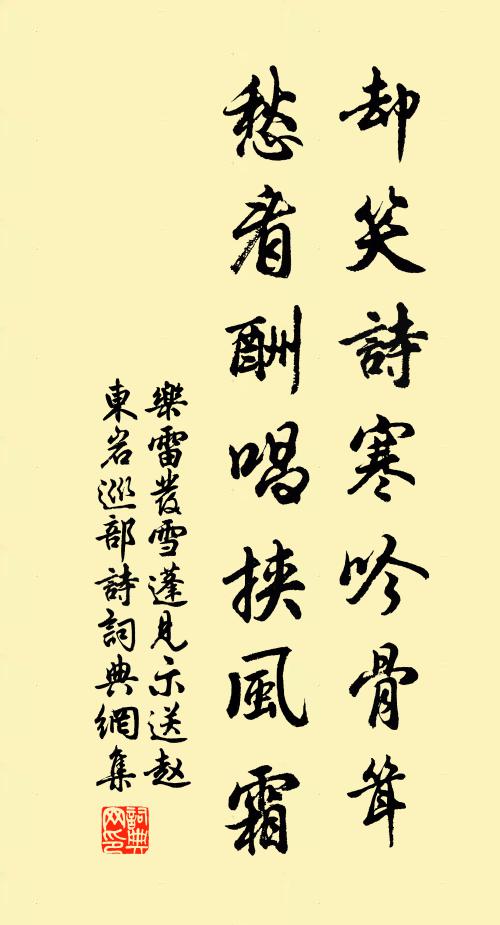 却笑詩寒吟骨聳
愁看酬唱挾風霜
樂雷發雪蓬見示送赵
東岩巡部詩詞典網集
詞典網印